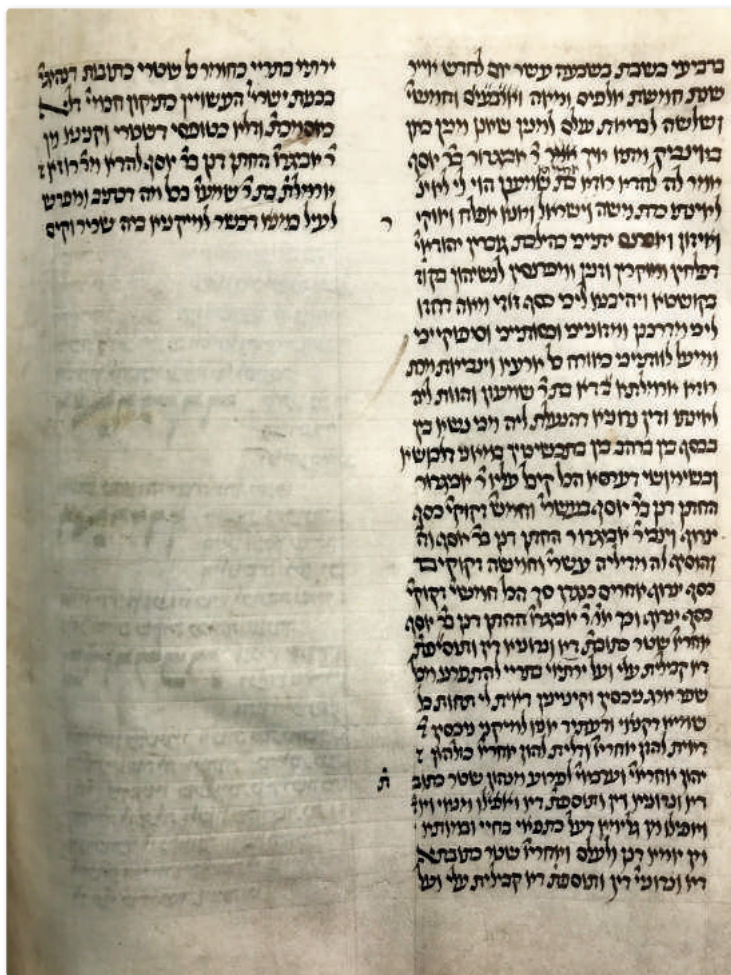 ברביעי בשבת בשבעה עשר יום לחדש אייר
שנת חמשת אלפים ומאה וחמשי׳
ושלשה לבריאת עלם למנין שאנן מנין כאן
איך ר׳ אביגדור בר׳ יוסף
אמר לה להדא רודא בת שמעון הוי לי לאינ׳
לאינתו כדת משה וישראל ואנא אפלח ואוקי׳
ואיזון ואפרנס יתיכי כהילכת גוברין יהודאי׳
דפלחין ומוקרין וזנין ומפרנסין לנשיהון בקוש׳
בקושטא ויהיבנא ליכי כסף זוזי מאה דחזו
ליכי מדרבנן ומזוניכי וכסותייכי וסיפוקייכי
ומיעל לוותיכי כאורח כל ארעא וצביאת מרת
רודא ארמלתא דא בת ר׳ שמעון והות ליה
לאינתו ודין נדוניא דהנעלת ליה מבי נשא בין
בכסף בין בדהב בין בתכשיטין במאני דלבושא
ובשימושי דערסא הכל קבל עליו ר׳ אביגדור
החתן דנן בר׳ יוסף בעשרי׳ וחמש׳ זקוקי׳ כסף
צרוף וצבי ר׳ אביגדור החתן דנן בר׳ יוסף וה׳
והוסיף לה מדיליה עשרי׳ וחמשה זקוקי׳
כסף צרוף אחרים כנגדן סך הכל חמשי׳ זקוקי׳
כסף צרוף וכך אמ׳ ר׳ אביגדו׳ החתן דנן בר׳ יוסף
אחריו׳ שטר כתובת׳ דא ונדוניא דין ותוספת׳
דא קבילית עלי ועל ירתאי בתריי להתפרע מכל
שפר ארג נכסין וקינינין דאית לי תחות כל
שמיא דקנאי ודעתיד אנא למיקני נכסין ד׳
דאית להון אחריו׳ ודלית להון אחריו׳ כולהון י׳
יהון אחריאי׳ וערבאי׳ לפרוע מנהון שטר כתוב׳ ת׳
דא ונדוניא דין ותוספת׳ דא ואפילו
ואפילו מן גלימא דעל כתפאי בחיי ובמותי׳
מן יומא דנן ולעלם ואחריו׳ שטר כתובתא
דא ונדוני׳ דין ותוספת׳ דא קבילית עלי ועל
ירתאי בתריי כחומר כל שטרי כתובות דנהיגי׳
בבנת ישרא׳ העשויין כתיקון חכמי׳ דלא
כאסמכת׳ ודלא כטופסי דשטרי וקנינא מן
ר׳ אביגדו׳ החתן דנן בר׳ יוסף להדא מר׳ רודא א׳
ארמלת׳ בת ר׳ שמעו׳ בכל מה דכתוב ומפרש
לעיל במנא דכשר למיקניא ביה שריר וקים